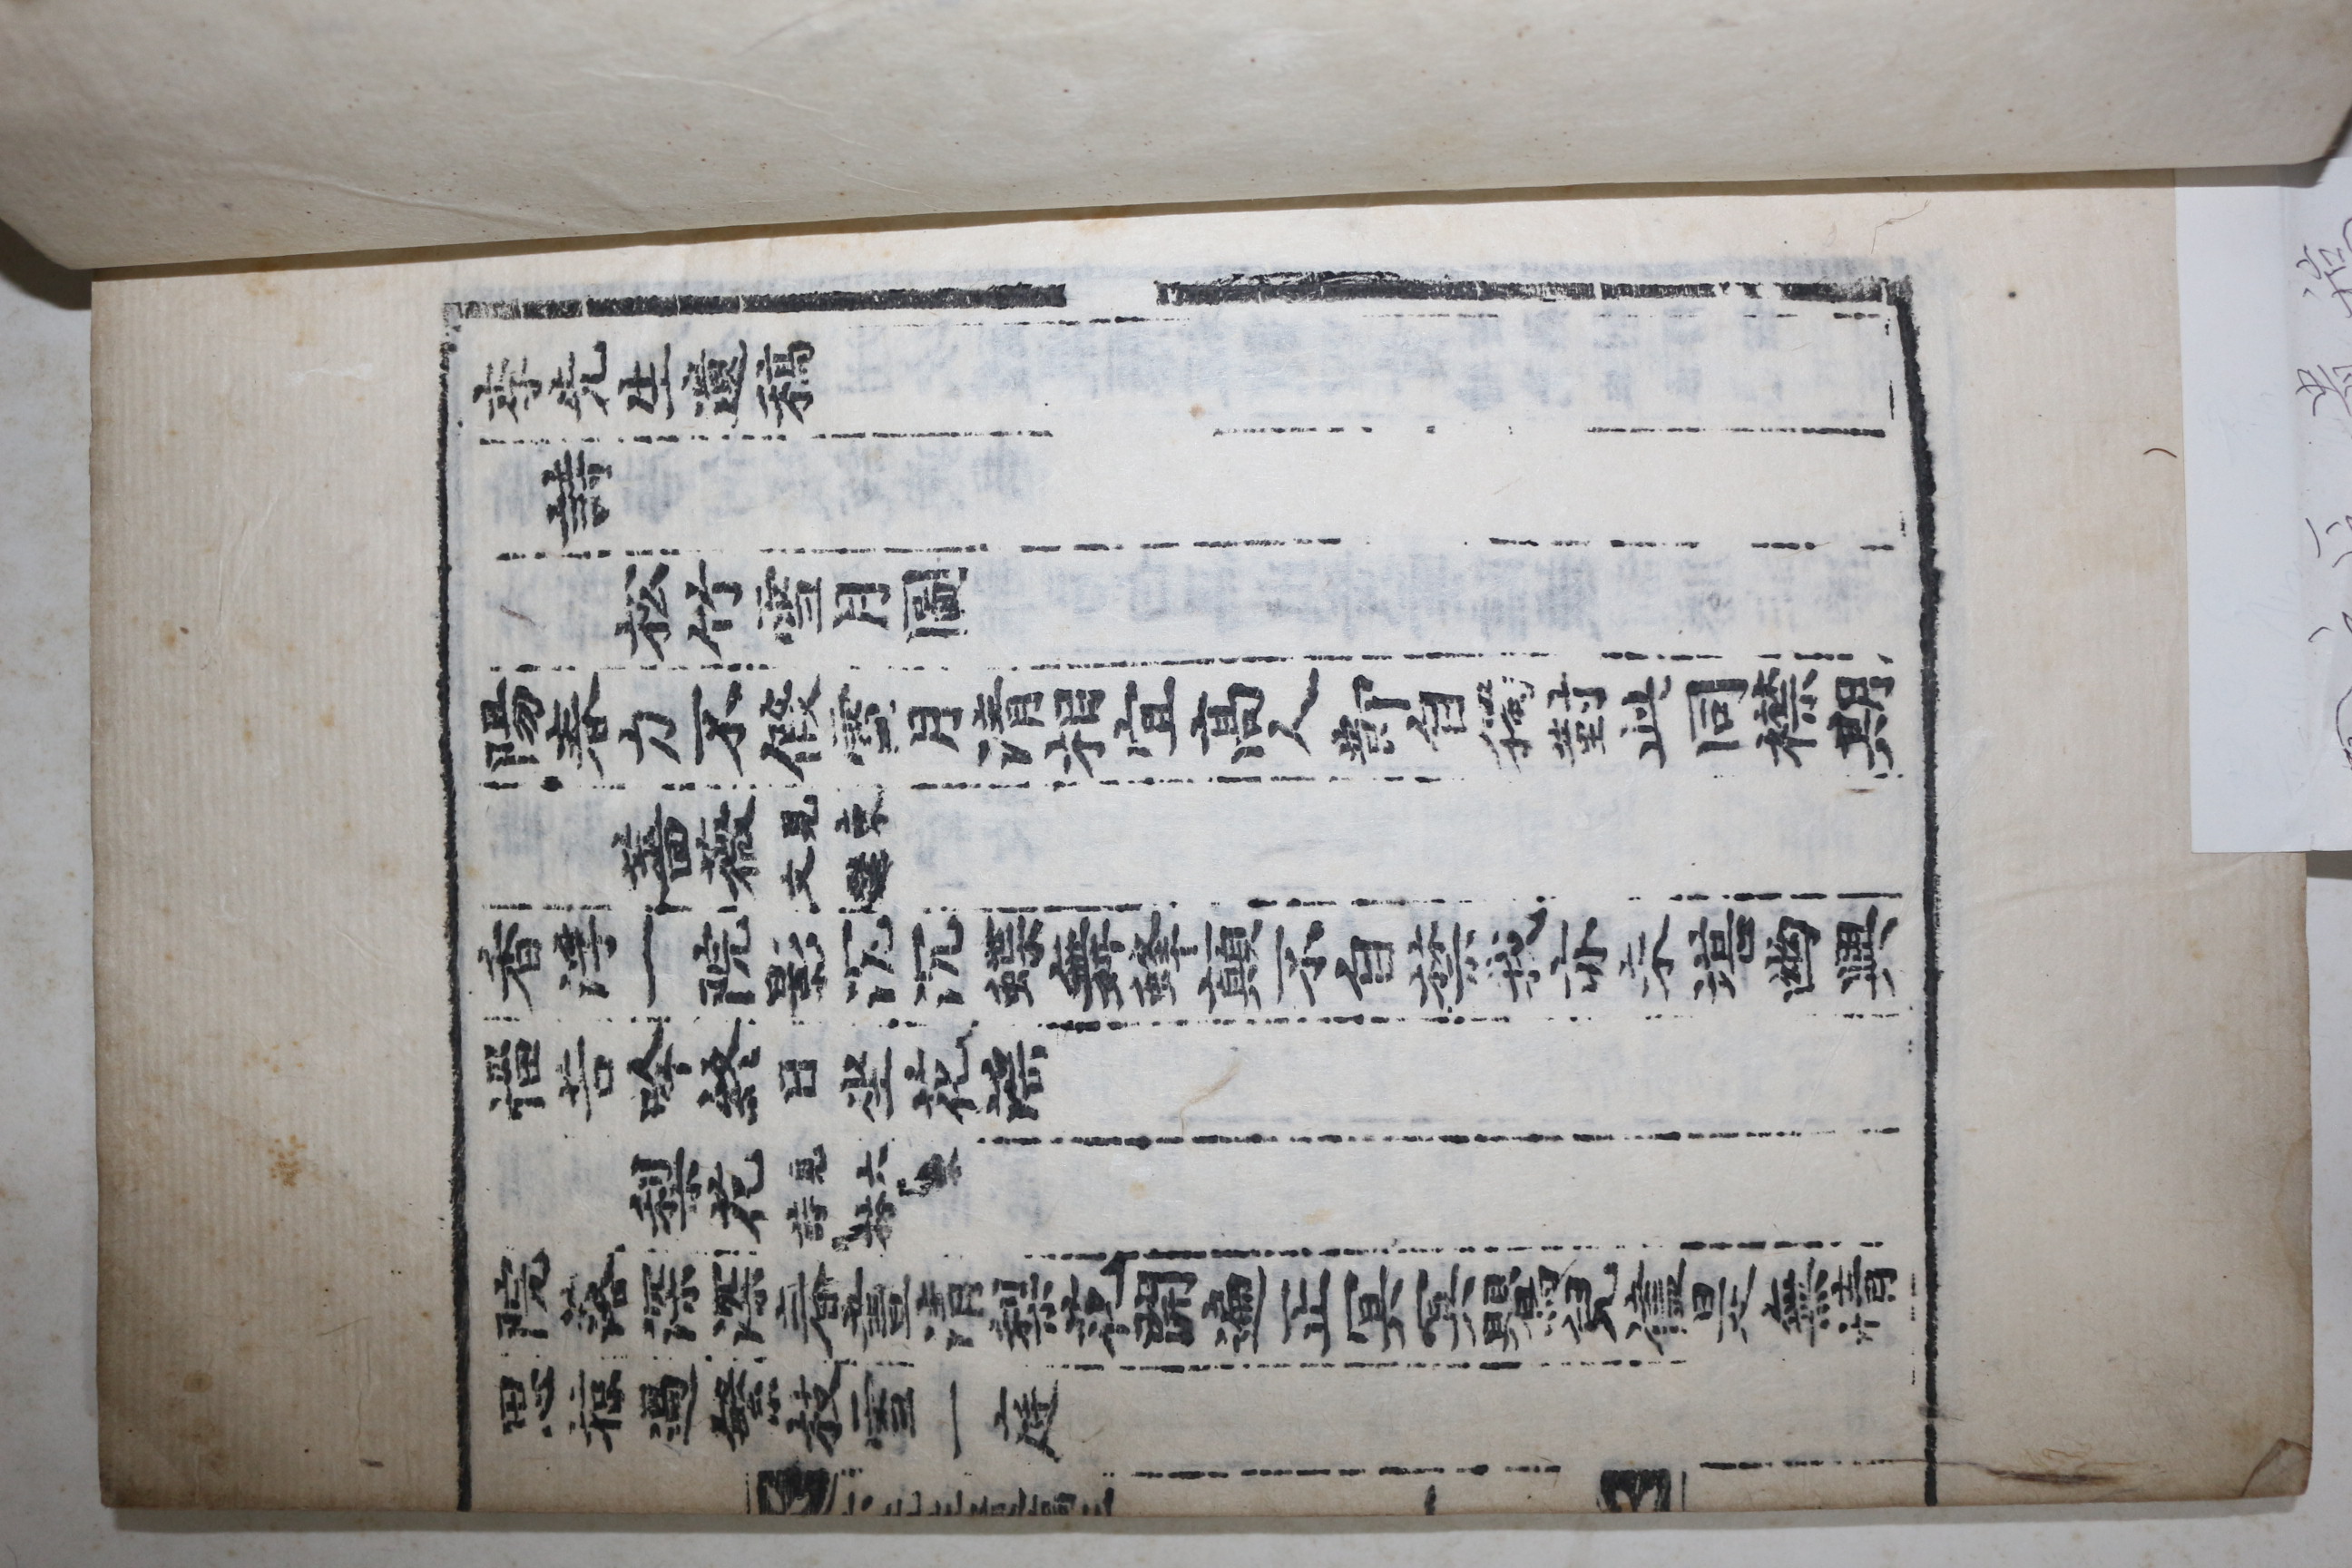 李先生遺稿
詩
松竹雪月圖
陽春力不假雪月清相宜高人節自獨對此同襟期
薔薇見東文選
香浮一院影沉沉蝶舞蜂顛不自禁我亦季堪幽興
惱苦吟終日坐花蔭
梨花見六家詩林
院落深深春晝清梨花開遍正冥冥鸎兒儘是無情
思掠過繁枝雪一庭
遺稿